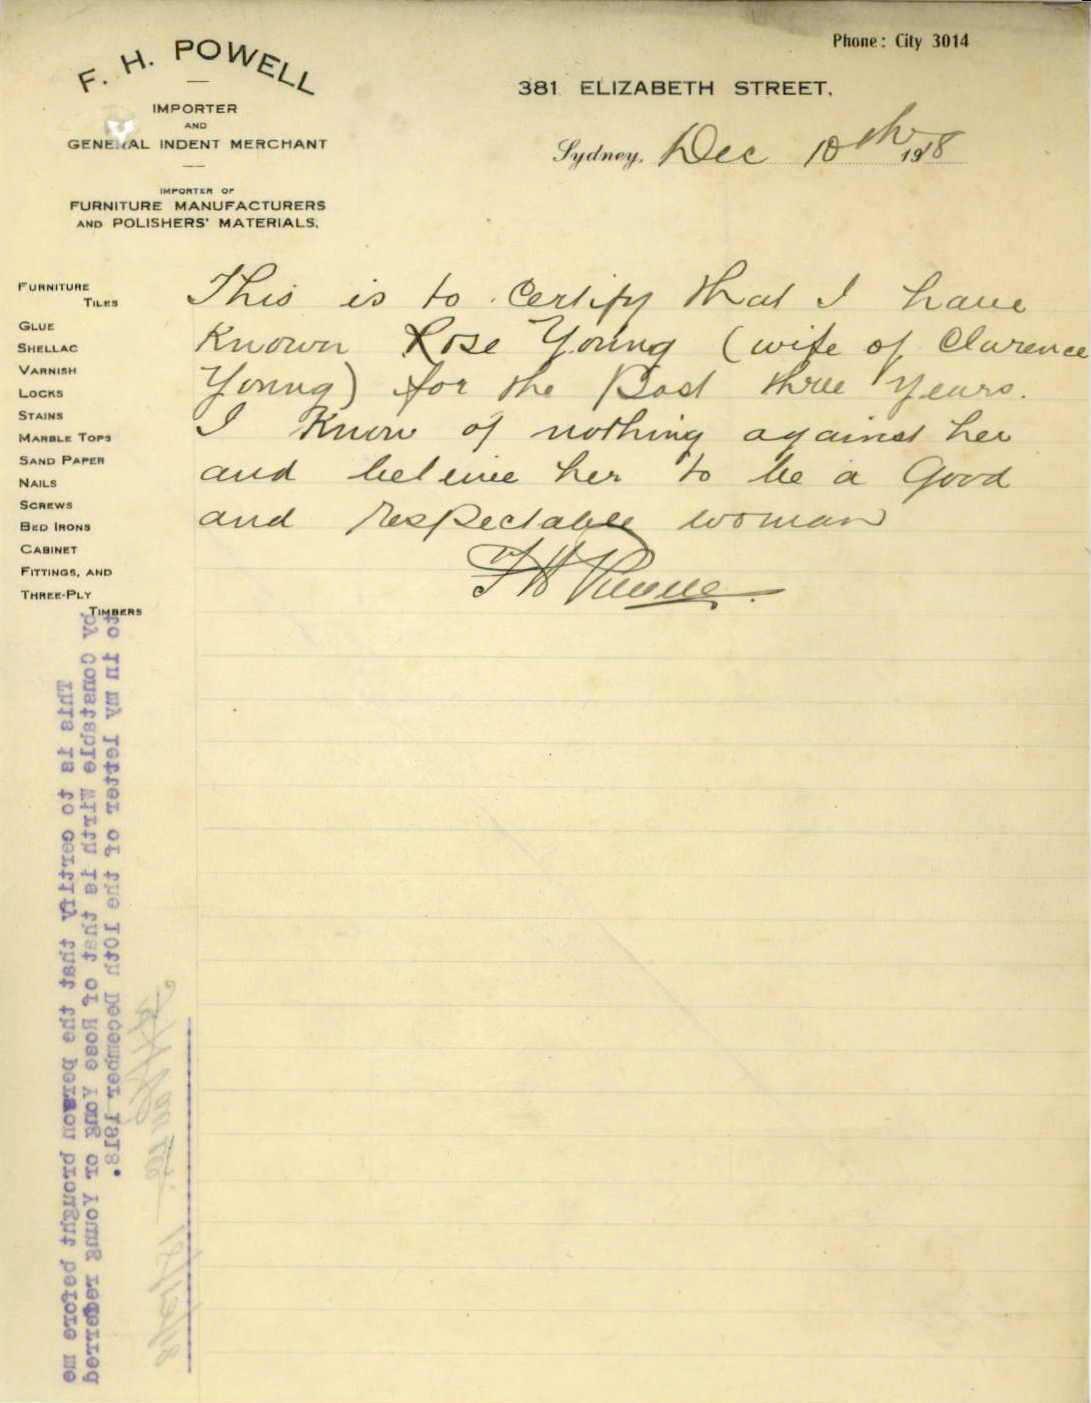 F. H. POWELL
IMPORTER
AND
GENERAL INDENT MERCHANT
IMPORTER OF
FURNITURE MANUFACTURERS
AND POLISHERS' MATERIALS.
Phone: City 3014
381 ELIZABETH STREET,
Sydney, Dec 10th 1918
FURNITURE
TILES
GLUE
SHELLAC
VARNISH
LOCKS
STAINS
MARBLE TOPS
SAND PAPER
NAILS
SCREWS
BED IRONS
CABINET
FITTINGS, AND
THREE-PLY
TIMBERS
This is to Certify that I have
Known Rose Young (wife of Clarence
Young) for the Past three Years.
I Know of nothing against her
and beleive her to be a Good
and respectable woman
This is to certify that the person brought before me
by Constable Wirth is that of Rose Yong or Young referred
to in my letter of the 10th December 1918.